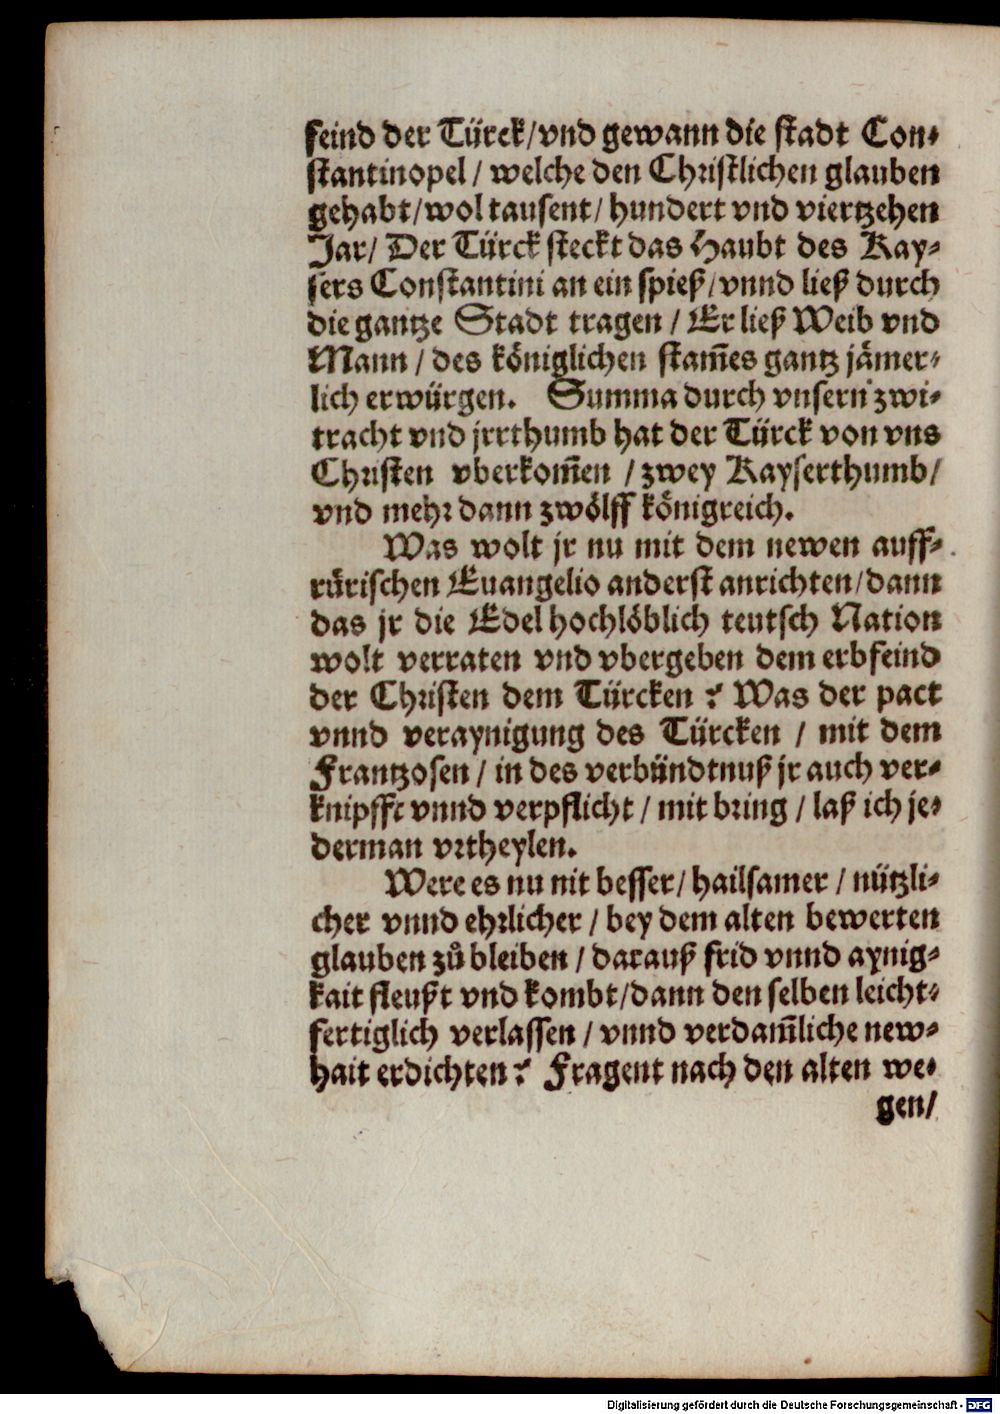 feind der Türck/vnd gewann die stadt Con-
stantinopel / welche den Christlichen glauben
gehabt/wol tausent/ hundert vnd viertzehen
Jar/ Der Türck steckt das Haubt des Kay-
sers Constantini an ein spieß/vnnd ließ durch
die gantze Stadt tragen / Er ließ Weib vnd
Mann / des königlichen stam̃es gantz jämer-
lich erwürgen. Summa durch vnsern zwi-
tracht vnd jrrthumb hat der Türck von vns
Christen vberkom̃en / zwey Kayserthumb/
vnd mehr dann zwölff königreich.
Was wolt jr nu mit dem newen auff-
rürischen Euangelio anderst anrichten/dann
das jr die Edel hochlöblich teutsch Nation
wolt verraten vnd vbergeben dem erbfeind
der Christen dem Türcken? Was der pact
vnnd veraynigung des Türcken / mit dem
Frantzosen / in des verbündtnuß jr auch ver-
knipfft vnnd verpflicht / mit bring / laß ich je-
derman vrtheylen.
Were es nu nit besser/ hailsamer / nützli-
cher vnnd ehrlicher / bey dem alten bewerten
glauben zů bleiben / darauß frid vnnd aynig-
kait fleußt vnd kombt/dann den selben leicht-
fertiglich verlassen / vnnd verdam̃liche new-
hait erdichten? Fragent nach den alten we-
gen/
Digitalisierung gefördert durch die Deutsche Forschungsgemeinschaft - DFG